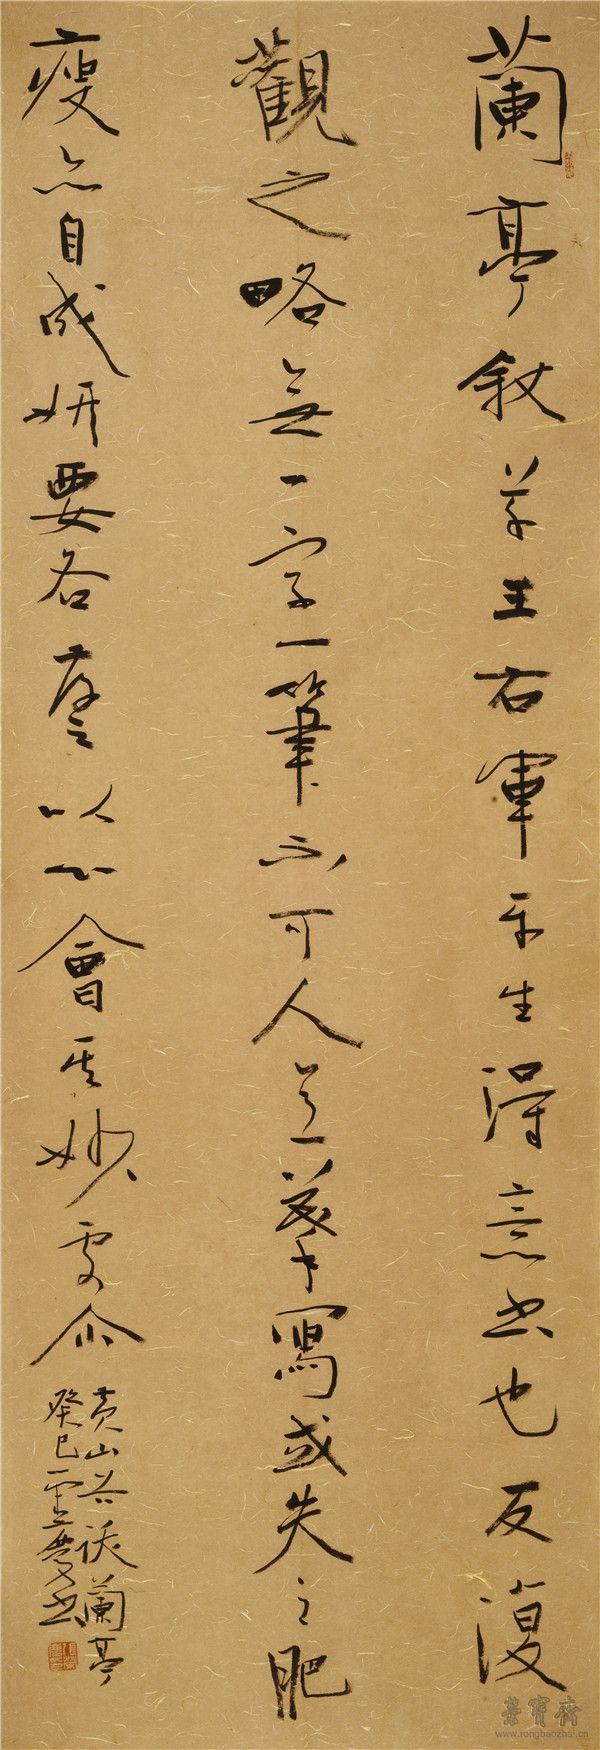 蘭亭敘草王右軍平生得意書也反復
觀之略無一字一筆不可人意摹寫或失之肥
瘦亦自成妍要各存之以心會其妙處尒
黃山谷跋蘭亭
癸巳書
榮寶齋
www.rongbaozhai.cn